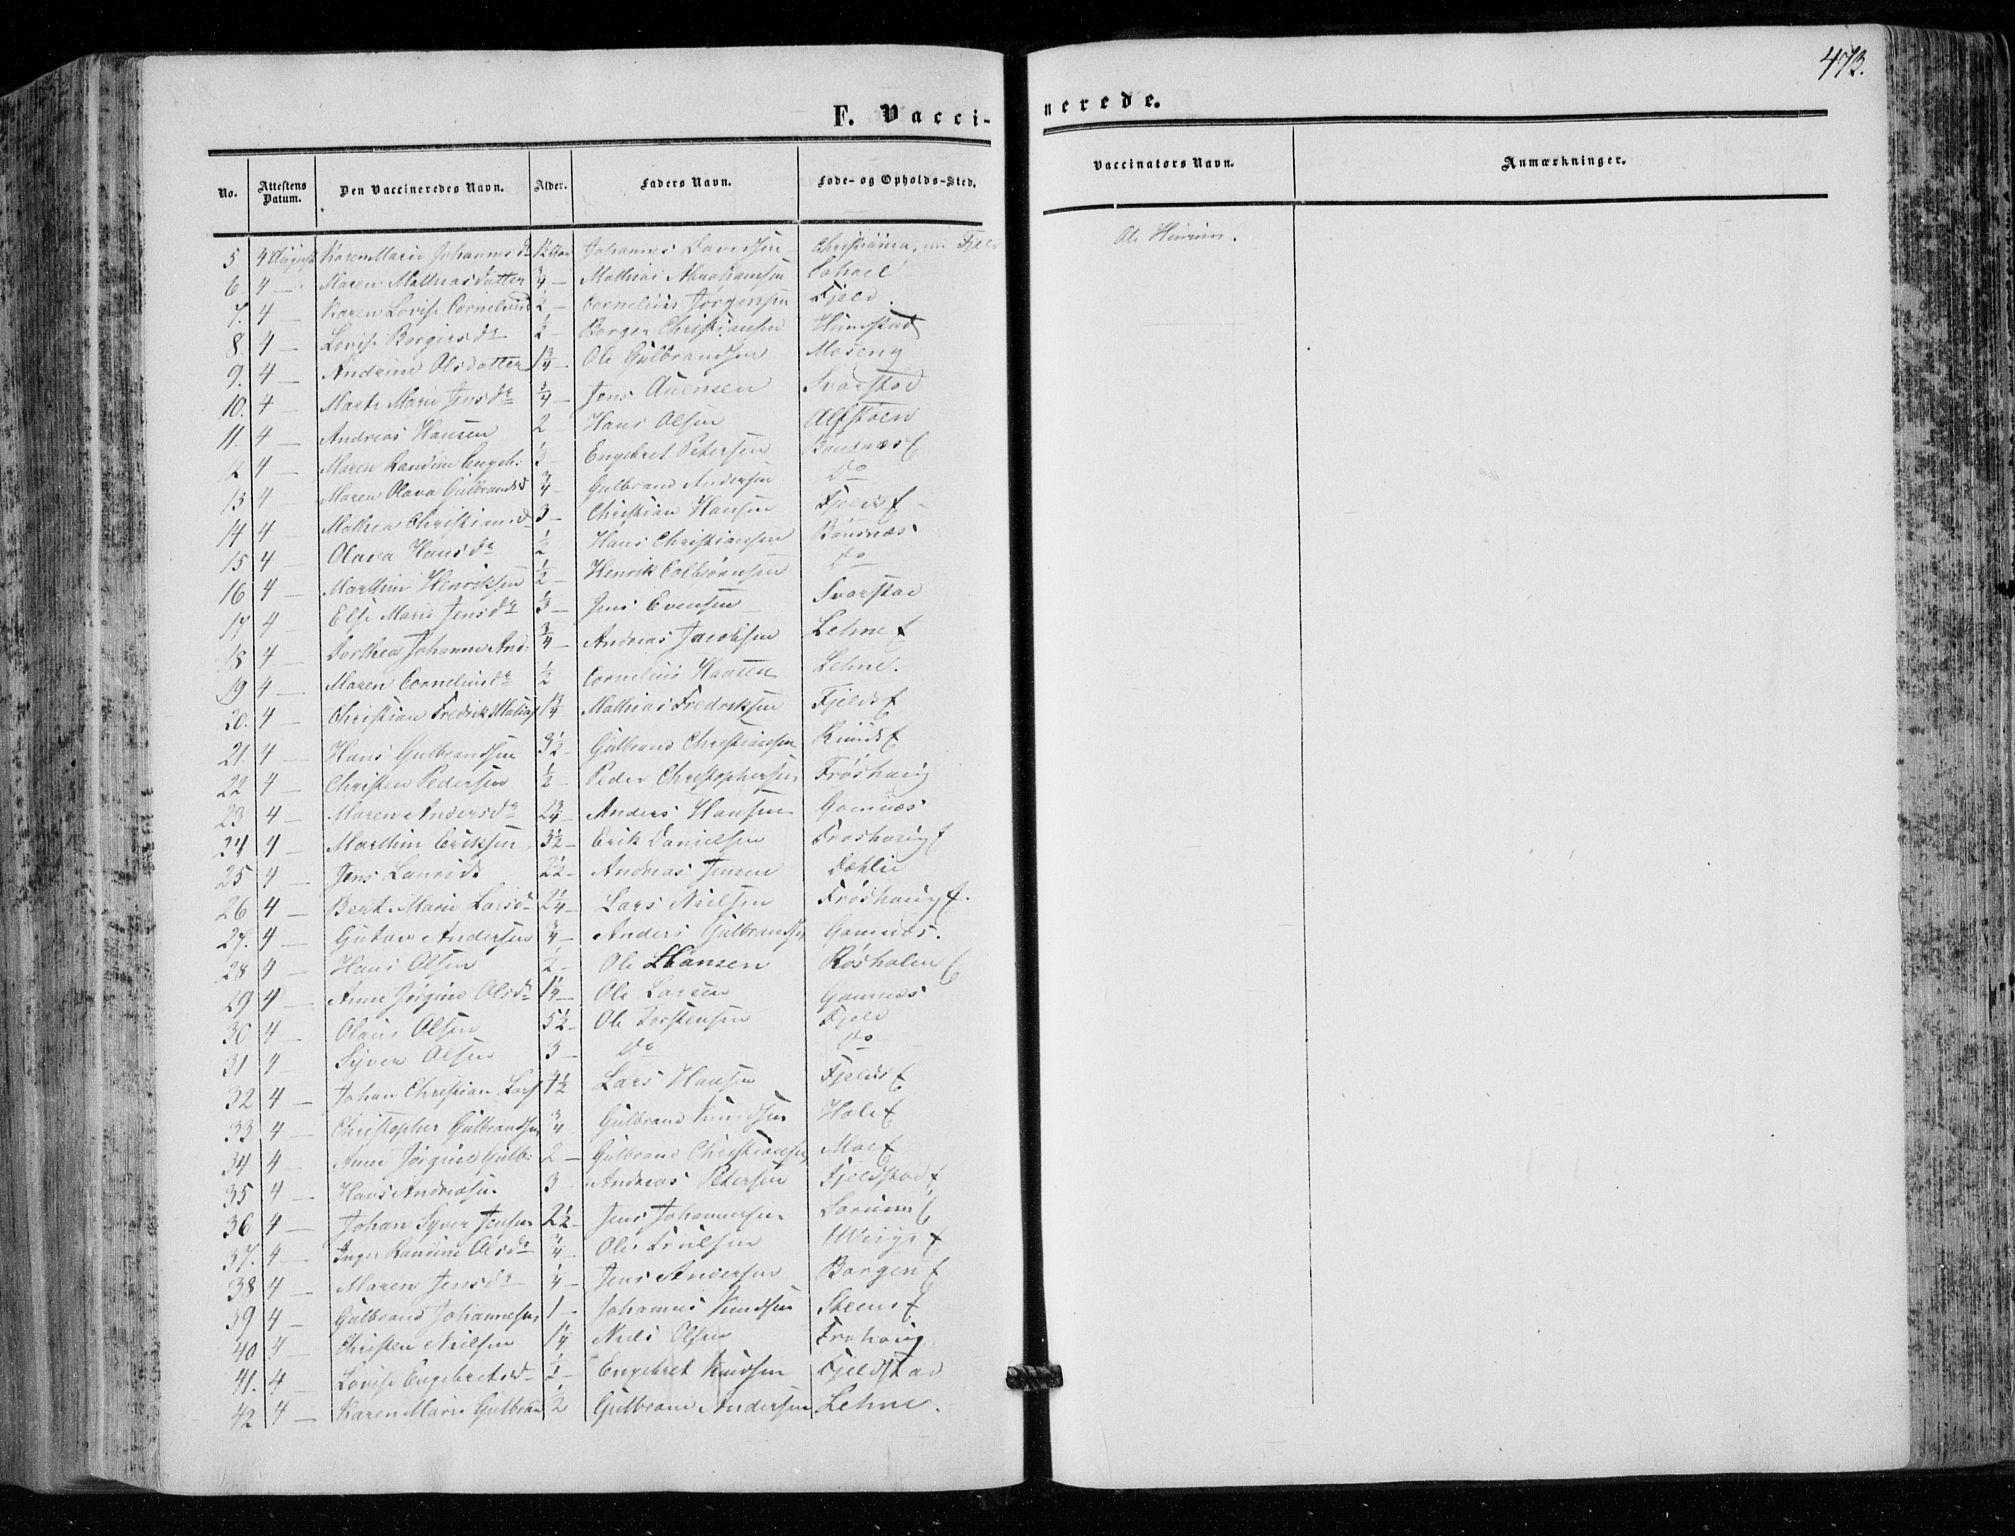 473.
F. Vacci- nerede.
No. Attestens Datum. Den Vaccineredes Navn. Alder. Faders Navn. Føde- og Opholds-Sted. Vaccinators Navn. Anmærkninger.
5 4 August Karen Marie Johannesd. Johannes Christiania, nu Fjeld Ole
6 4 — Maren Mathiasdatter 3/4 — Mathias Abrahamsen
7. 4 — Karen Lovise Corneliusd 1/2 — Cornelius Jørgensen Fjeld.
8. 4 — Lovise Borgersdr 1/2 — Borger Christiansen Hundstad
9. 4 — Andrine Olsdatter 1 3/4 — Ole Gulbrandsen Moseng
10. 4 — Marte Marie Jensdr 3/4 — Jens Svarstad
11. 4 — Andreas Hansen 2 — Hans Olsen Alfstøen
12 4 — Maren Randine Engeb: Engebret Petersen Bønsnæs
13 4 — Maren Olava Gulbrandsd 3/4 — Gulbrand Andersen do
14 4 — Mathea Christiansd 3 — Christian Hansen Fjelds
15 4 — Olava Hansdr 1/2 Hans Christiansen Bønsnæs
16 4 — Marthin Henriksen 1/2 — Henrik Colbiørnsen do
17 4 — Else Marie Jensdr Jens Evensen Svarstad
18 4 — Dorthea Johanne And: 3/4 — Andreas Jacobsen Lehne
19 4 — Maren Corneliusdr 1/2 Cornelius Hansen Lehne.
20. 4 — Christian Fredrik Mathias 1 3/4 Mathias Fredriksen Fjelds
21. 4 — Hans Gulbrandsen 3 1/2 — Gulbrand Christiansen
22 4 — Christen Pedersen 1/2 — Peder Christophersen Frøshaug
23 4 — Maren Andersdr 2 3/4 — Anders Hansen Gomnæs
24 4 — Marthin Eriksen 3 1/2 — Erik Danielsen Frøshaug
25 4 — Jens 2 1/2 — Andreas Jensen Dæhlie
26 4 — Berte Marie Larsd 2 1/4 — Lars Nielsen Frøshaug
27. 4 — Gustav Andersen 3/4 — Anders Gulbrandsen Gomnæs.
28 4 — Hans Olsen 1/2 — Ole Hansen Røsholm
29 4 — Anne Jørgine Olsdr 1 1/4 — Ole Larsen Gomnæs
30 4 — Olaus Olsen 5 1/2 — Ole Torstensen Fjeld
31 4 — Syver Olsen 3 — do do
32 4 — Johan Christian Lars Lars Hansen Fjelds
33 4 — Christopher Gulbrandsen 3/4 Gulbrand Knudsen Hole
34 4 — Anne Jørgine Gulb: 2 — Gulbrand Christiansen Moe
35 4 — Hans Andreasen 3 — Andreas Petersen Fjeldstad
36 4 — Johan Syver Jensen 2 1/2 — Jens Johannesen
37. 4 — Inger Randine Olsdr 3/4 — Ole
38 4 — Maren Jensdr 1/4 — Jens Andersen Borgen
39 4 — Gulbrand Johannesen 1 — Johannes Knudsen Steens
40 4 — Christen Nielsen 1 1/4 Niels Olsen
41. 4 — Lovise Engebretsd 1/2 — Engebret Knudsen Fjeldstad
42 4 — Karen Marie Gulbran 1/2 Gulbrand Andersen Lehne.